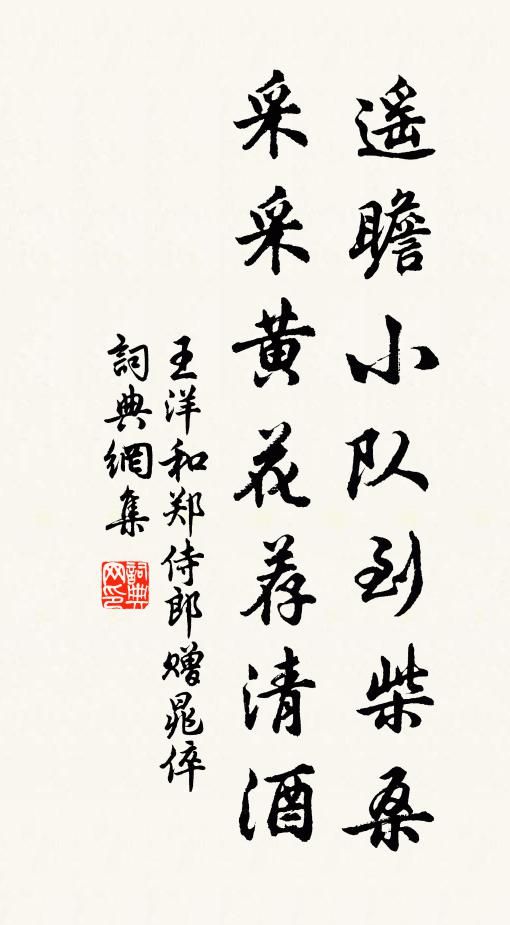 遥瞻小队到柴桑
采采黄花荐清酒
王洋和郑侍郎赠晁倅
詞典網集
詞典
网印